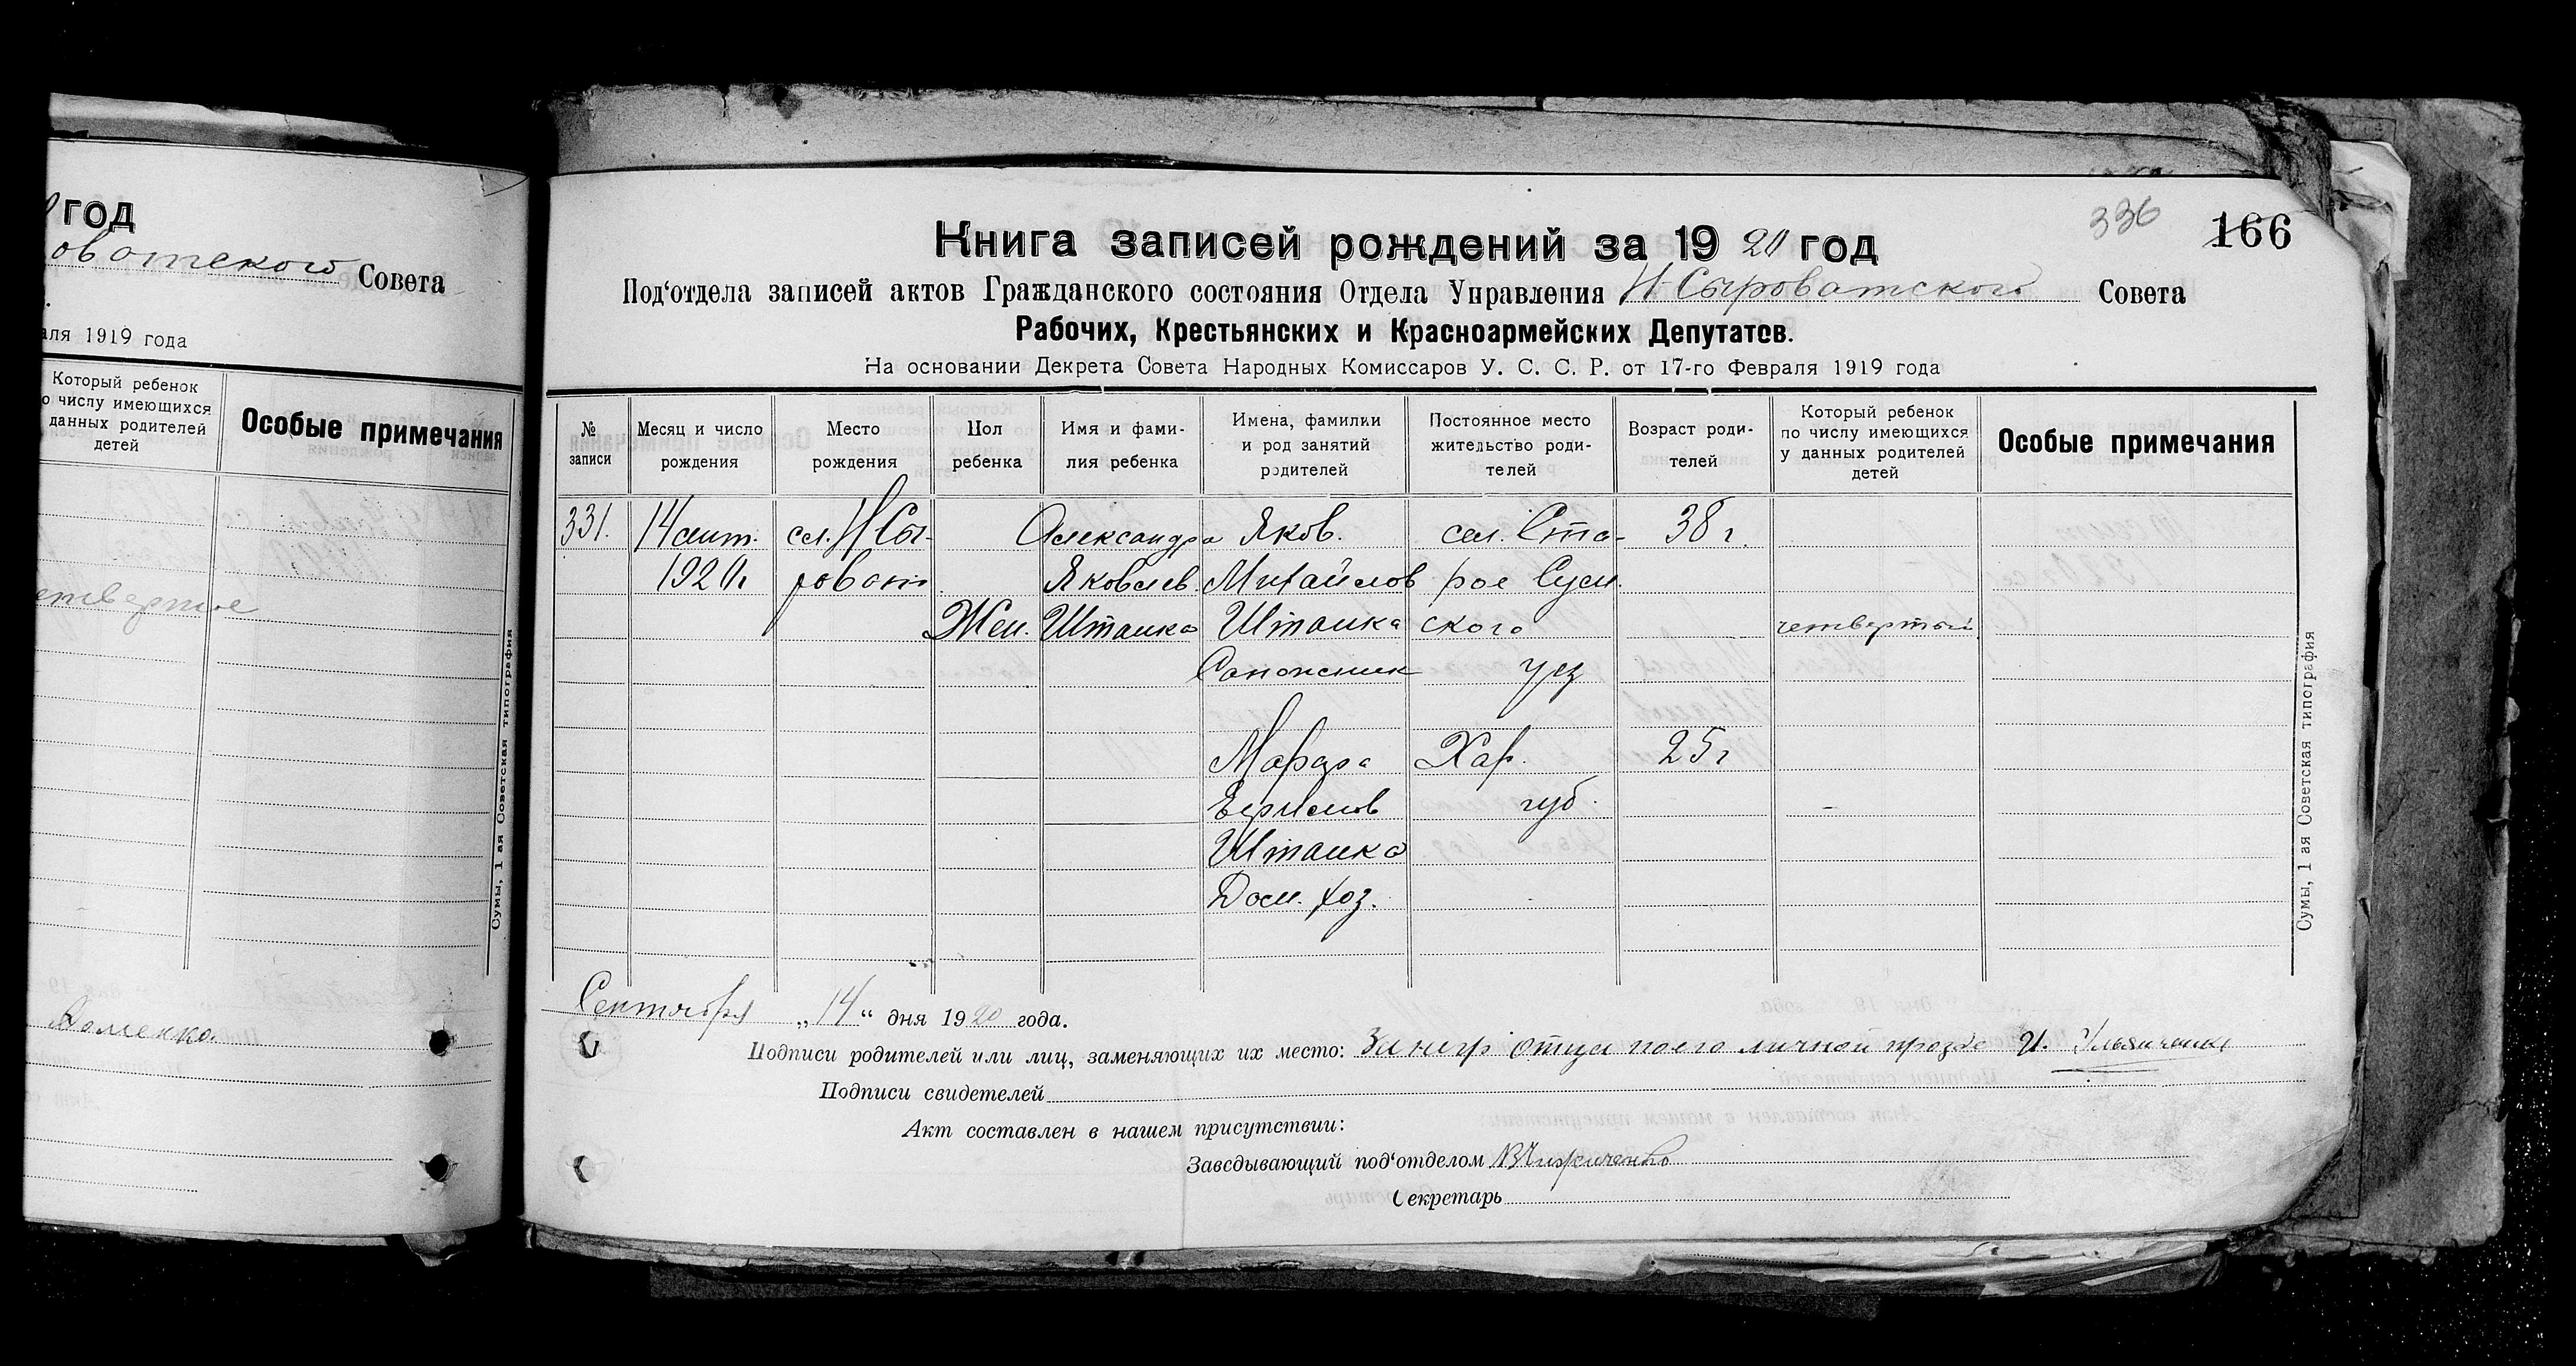 год
оватского Совета
аля 1919 года
Который ребенок
о числу имеющихся
данных родителей
детей
Особые примечания
четвертое
Сумы, 1 ая Советская типография
336
166
Книга записей рождений за 1920 год
Под‘отдела записей актов Гражданского состояния Отдела Управления Н Сыроватского Совета
Рабочих, Крестьянских и Красноармейских Депутатов.
На основании Декрета Совета Народных Комиссаров У. С. С. Р. от 17-го Февраля 1919 года
№ записи
Месяц и число рождения
Место рождения
Пол ребенка
Имя и фамилия ребенка
Имена, фамилии и род занятий родителей
Постоянное место жительство родителей
Возраст родителей
Который ребенок по числу имеющихся у данных родителей детей
Особые примечания
331. 14 сент. сел. Н Сы- Александра Яков. сел. Ста- 38 г.
1920г. роват Яковлев. Михайлов рое Сум.
Жен. Штанка Штанка ского четвертый
Сапожник уез
Марфа Хар. 25 г
Ефимов губ.
Штанка
Дом. хоз.
Сентября „14“ дня 1920 года.
Подписи родителей или лиц, заменяющих их место: За негр отца по его личной прозбе И. Ульянченко
Подписи свидетелей
Акт составлен в нашем присутствии:
Заведывающий под‘отделом В Чижиченко
Секретарь
Сумы, 1 ая Советская типография